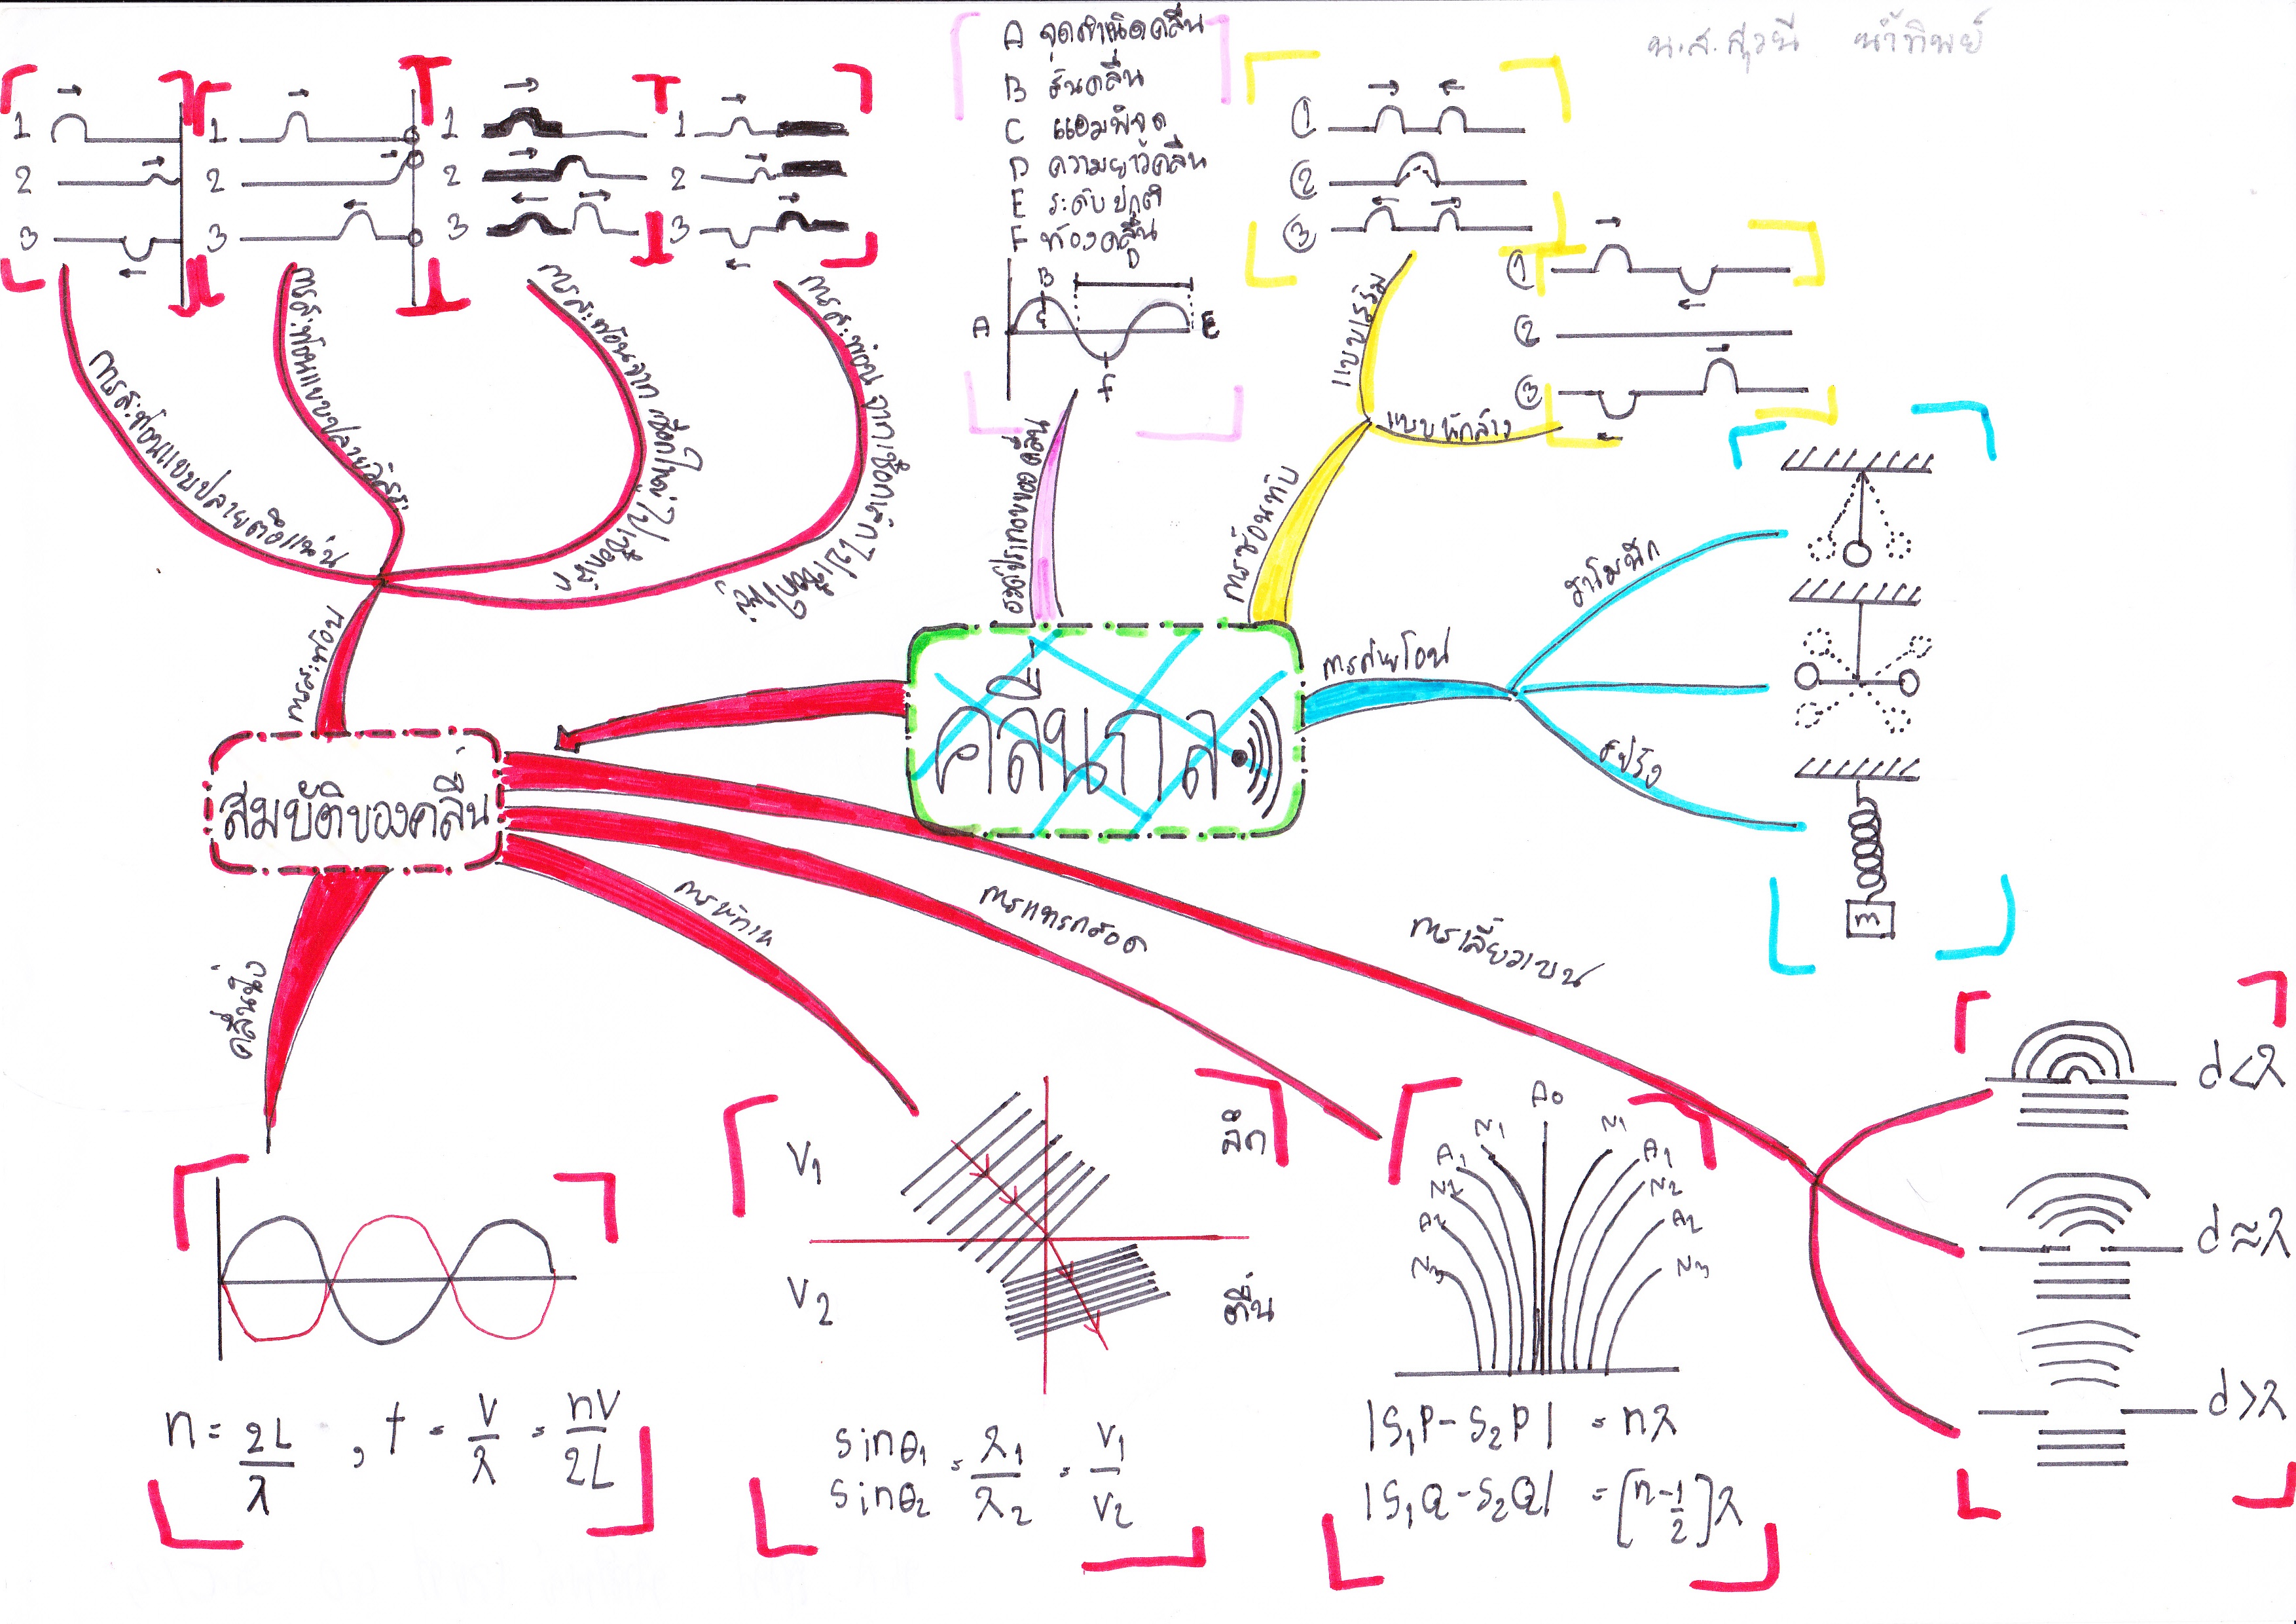 น.ส.สุวนี น้ำทิพย์
A จุดกำเนิดคลื่น
B สันคลื่น
C แอมพิจูด
D ความยาวคลื่น
E ระดับปกติ
F ท้องคลื่น
1
2
3
1
2
3
1
2
3
1
2
3
A
B
C
D
E
F
①
②
③
①
②
③
การสะท้อนแบบปลายตึงแน่น
การสะท้อนแบบปลายอิสระ
การสะท้อนจากเชือกใหญ่ไปเชือกเล็ก
การสะท้อนจากเชือกเล็กไปเชือกใหญ่
การสะท้อน
องค์ประกอบของคลื่น
การซ้อนทับ
แบบเสริม
แบบหักล้าง
คลื่นกล
การถ่ายโอน
ฮาโมนิก
สปริง
m
สมบัติของคลื่น
คลื่นนิ่ง
การหักเห
การแทรกสอด
การเลี้ยวเบน
n = 2L/λ , f = V/λ = nV/2L
V1
ลึก
V2
ตื้น
sinθ1/sinθ2 = λ1/λ2 = V1/V2
A0
N1
N1
A1
A1
N2
N2
A2
A2
N3
N3
|S1P-S2P| = nλ
|S1Q-S2Q| = [n-1/2]λ
d<λ
d≈λ
d>λ